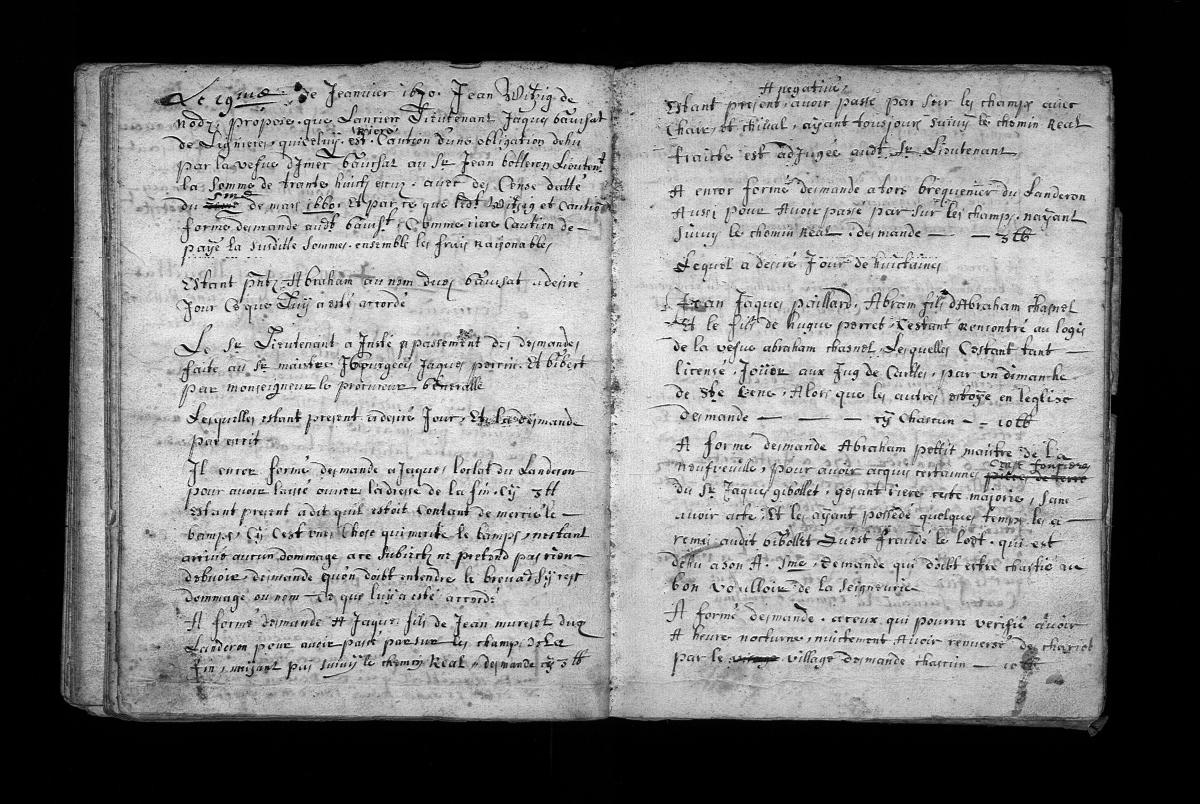 Le 19me de Jeanvier 1670. Jean Witzig de
Nodz, propose, que Lancien Lieutenant Jaque bauisat
de Lignieres, qui deluy est riere Caution d'une obligation dehu
par la vefue dimer bauisat au Sr Jean botteron Lieutent
la somme de trante huich escu, avec des Cense datté
du 5me de mars 1660. Et par ce que ledt Witzig et Caution
formé desmande audt bauist. Comme riere Caution de
payé la susditte sommes. ensemble les frais raisonables
Estant pntz Abraham au nom du bauisat a desiré
Jour Ce que Luy a esté accordé
Le Sr Lieutenant a Insté passement des desmandes
faitte au Sr maistre bourgeois Jaques perrin. Et bibert
par monseigneur le procureur generalle
Lesquelles estant present a desiré Jour, Et la desmande
par escrit
Il encor formé desmande a Jaques loclat du Landeron
pour avoir laissé ouvrir ladresse de la fin. Cy 3 ll
Estant present a dit quil estoit Contant de mercie le
bamps, Cy C'est une Chose qui merite le bamps, nestant
arrivé aucun dommage a ce Subiect ne pretend pas rien
debvoir, desmande qu'on doibt entendre le brevard sy y est
dommage ou nom Ce que luy a esté accordé
A formé desmande A Jaques fils de Jean mureset duq
Landeron pour avoir passé par sur les champs de la
fin, nayant pas suivy le chemin Real, desmande cy 3 ll
A negative
Estant present, avoir passé par sur les champs avec
Chair, et chival, ayant tousjours suivy le chemin Real
traicte est adjugée audt Sr Lieutenant
A encor formé desmande a brequenier du Landeron
Aussi pour Avoir passé par sur les champs. nayant
suivy le chemin Real. desmande 3 ll
Lequel a desiré Jour de huictaines
Jean Jaques paillard, Abram fils d'Abraham chasnel
Et le fils de hugue perret, Cestant Rencontré au logis
de la vefue abraham chasnel, Lesquelles Cestant tant
license, Joüer aux Jug de Cartes, par un dimanche
de Ste Cene, Alors que les autres estoye en leglise
desmande cy Chascun 10 ll
A formé desmande Abraham pettit maitre de la
neufveville, pour avoir acquis certainnes Cense fonciere
du Sr Jaques gibollet, gosant riere ceste majorie, sans
avoir acte, Et les ayant possedé quelques temps les a
remis audit gibollet Quest fraude le lodt. qui est
dehu a Son A. Sme, demande qui doibt estre chastié au
bon voulloir de la Seigneurie
A formé desmande. a ceux qui pourra verifié avoir
A heure nocturne, nuictement Avoir renversé des chariot
par le village desmande chascun 10 ll